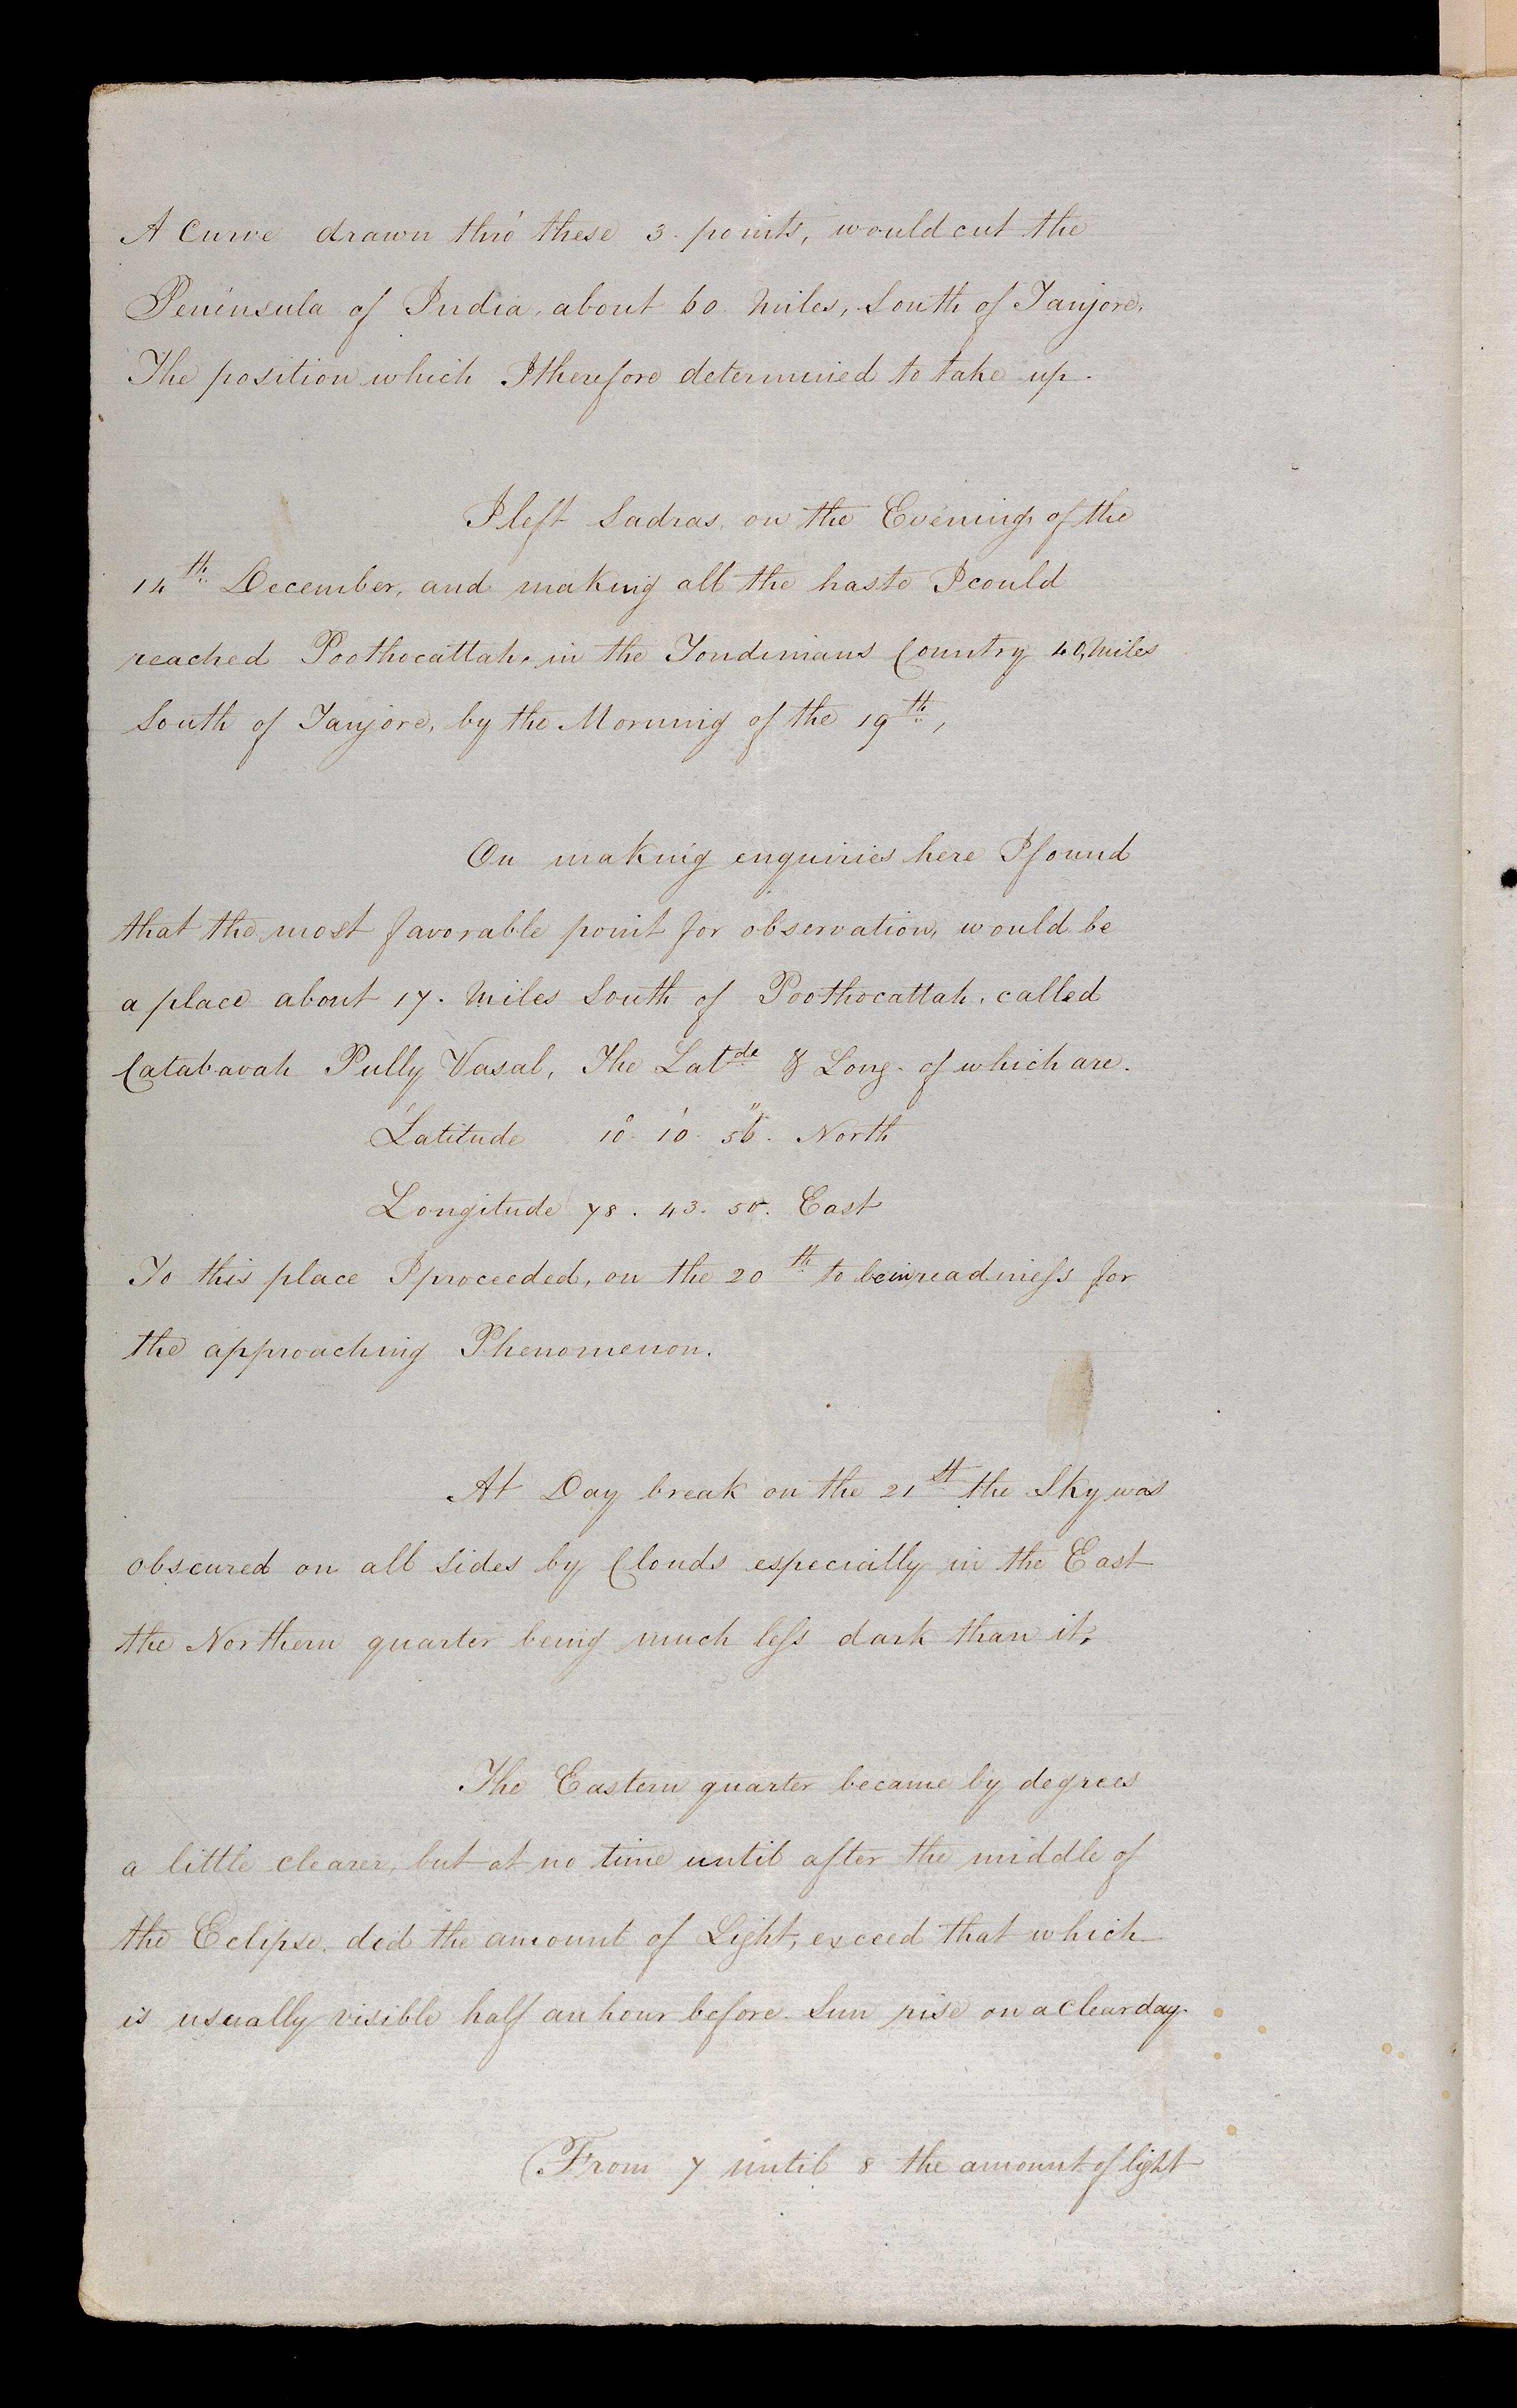 A Curve drawn thro' these 3. points, would cut the
Peninsula of India, about 60 Miles, South of Tanjore,
The position which I therefore determined to take up.
I left Sadras, on the Evening of the
14th December, and making all the haste I could
reached Poothocattah, in the Tondimans Country 40, Miles
South of Tanjore, by the Morning of the 19th,
On making enquiries here I found
that the most favorable point for observation, would be
a place about 17. Miles South of Poothocattah, called
Pully Vasal, The Latde & Long. of which are.
Latitude 10° 10' 56" North
Longitude 78. 43. 50. East
To this place I proceeded, on the 20th to be in readiness for
the approaching Phenomenon.
At Day break on the 21st the Sky was
obscured on all Sides by Clouds especially in the East
the Northern quarter being much less dark than it,
The Eastern quarter became by degrees
a little clearer, but at no time until after the middle of
the Eclipse, did the amount of Light, exceed that which
is usually visible half an hour before Sun rise on a clear day.
From 7 until 8 the amount of light